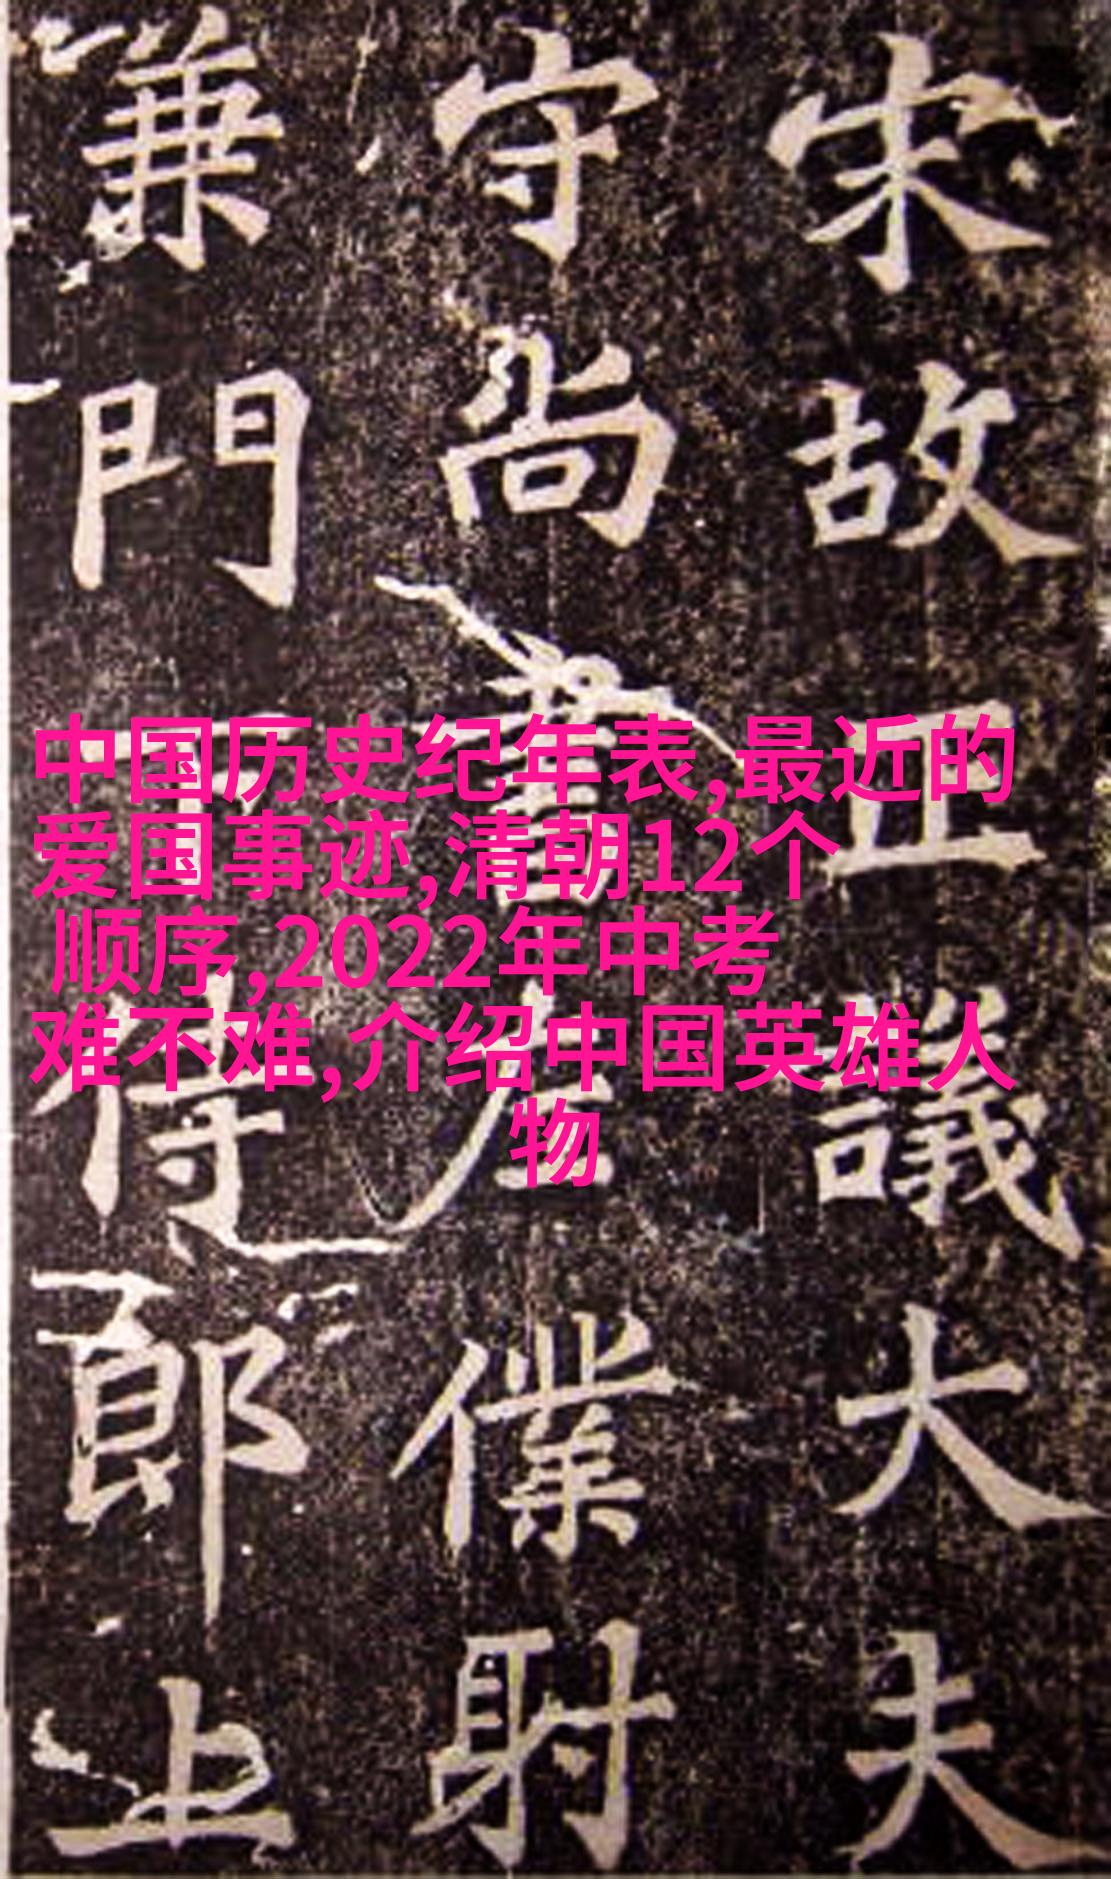 宋故正議大夫
守尚書左僕射
兼門下侍郎上
中国历史纪年表,最近的
爱国事迹,清朝12个
顺序,2022年中考
难不难,介绍中国英雄人
物